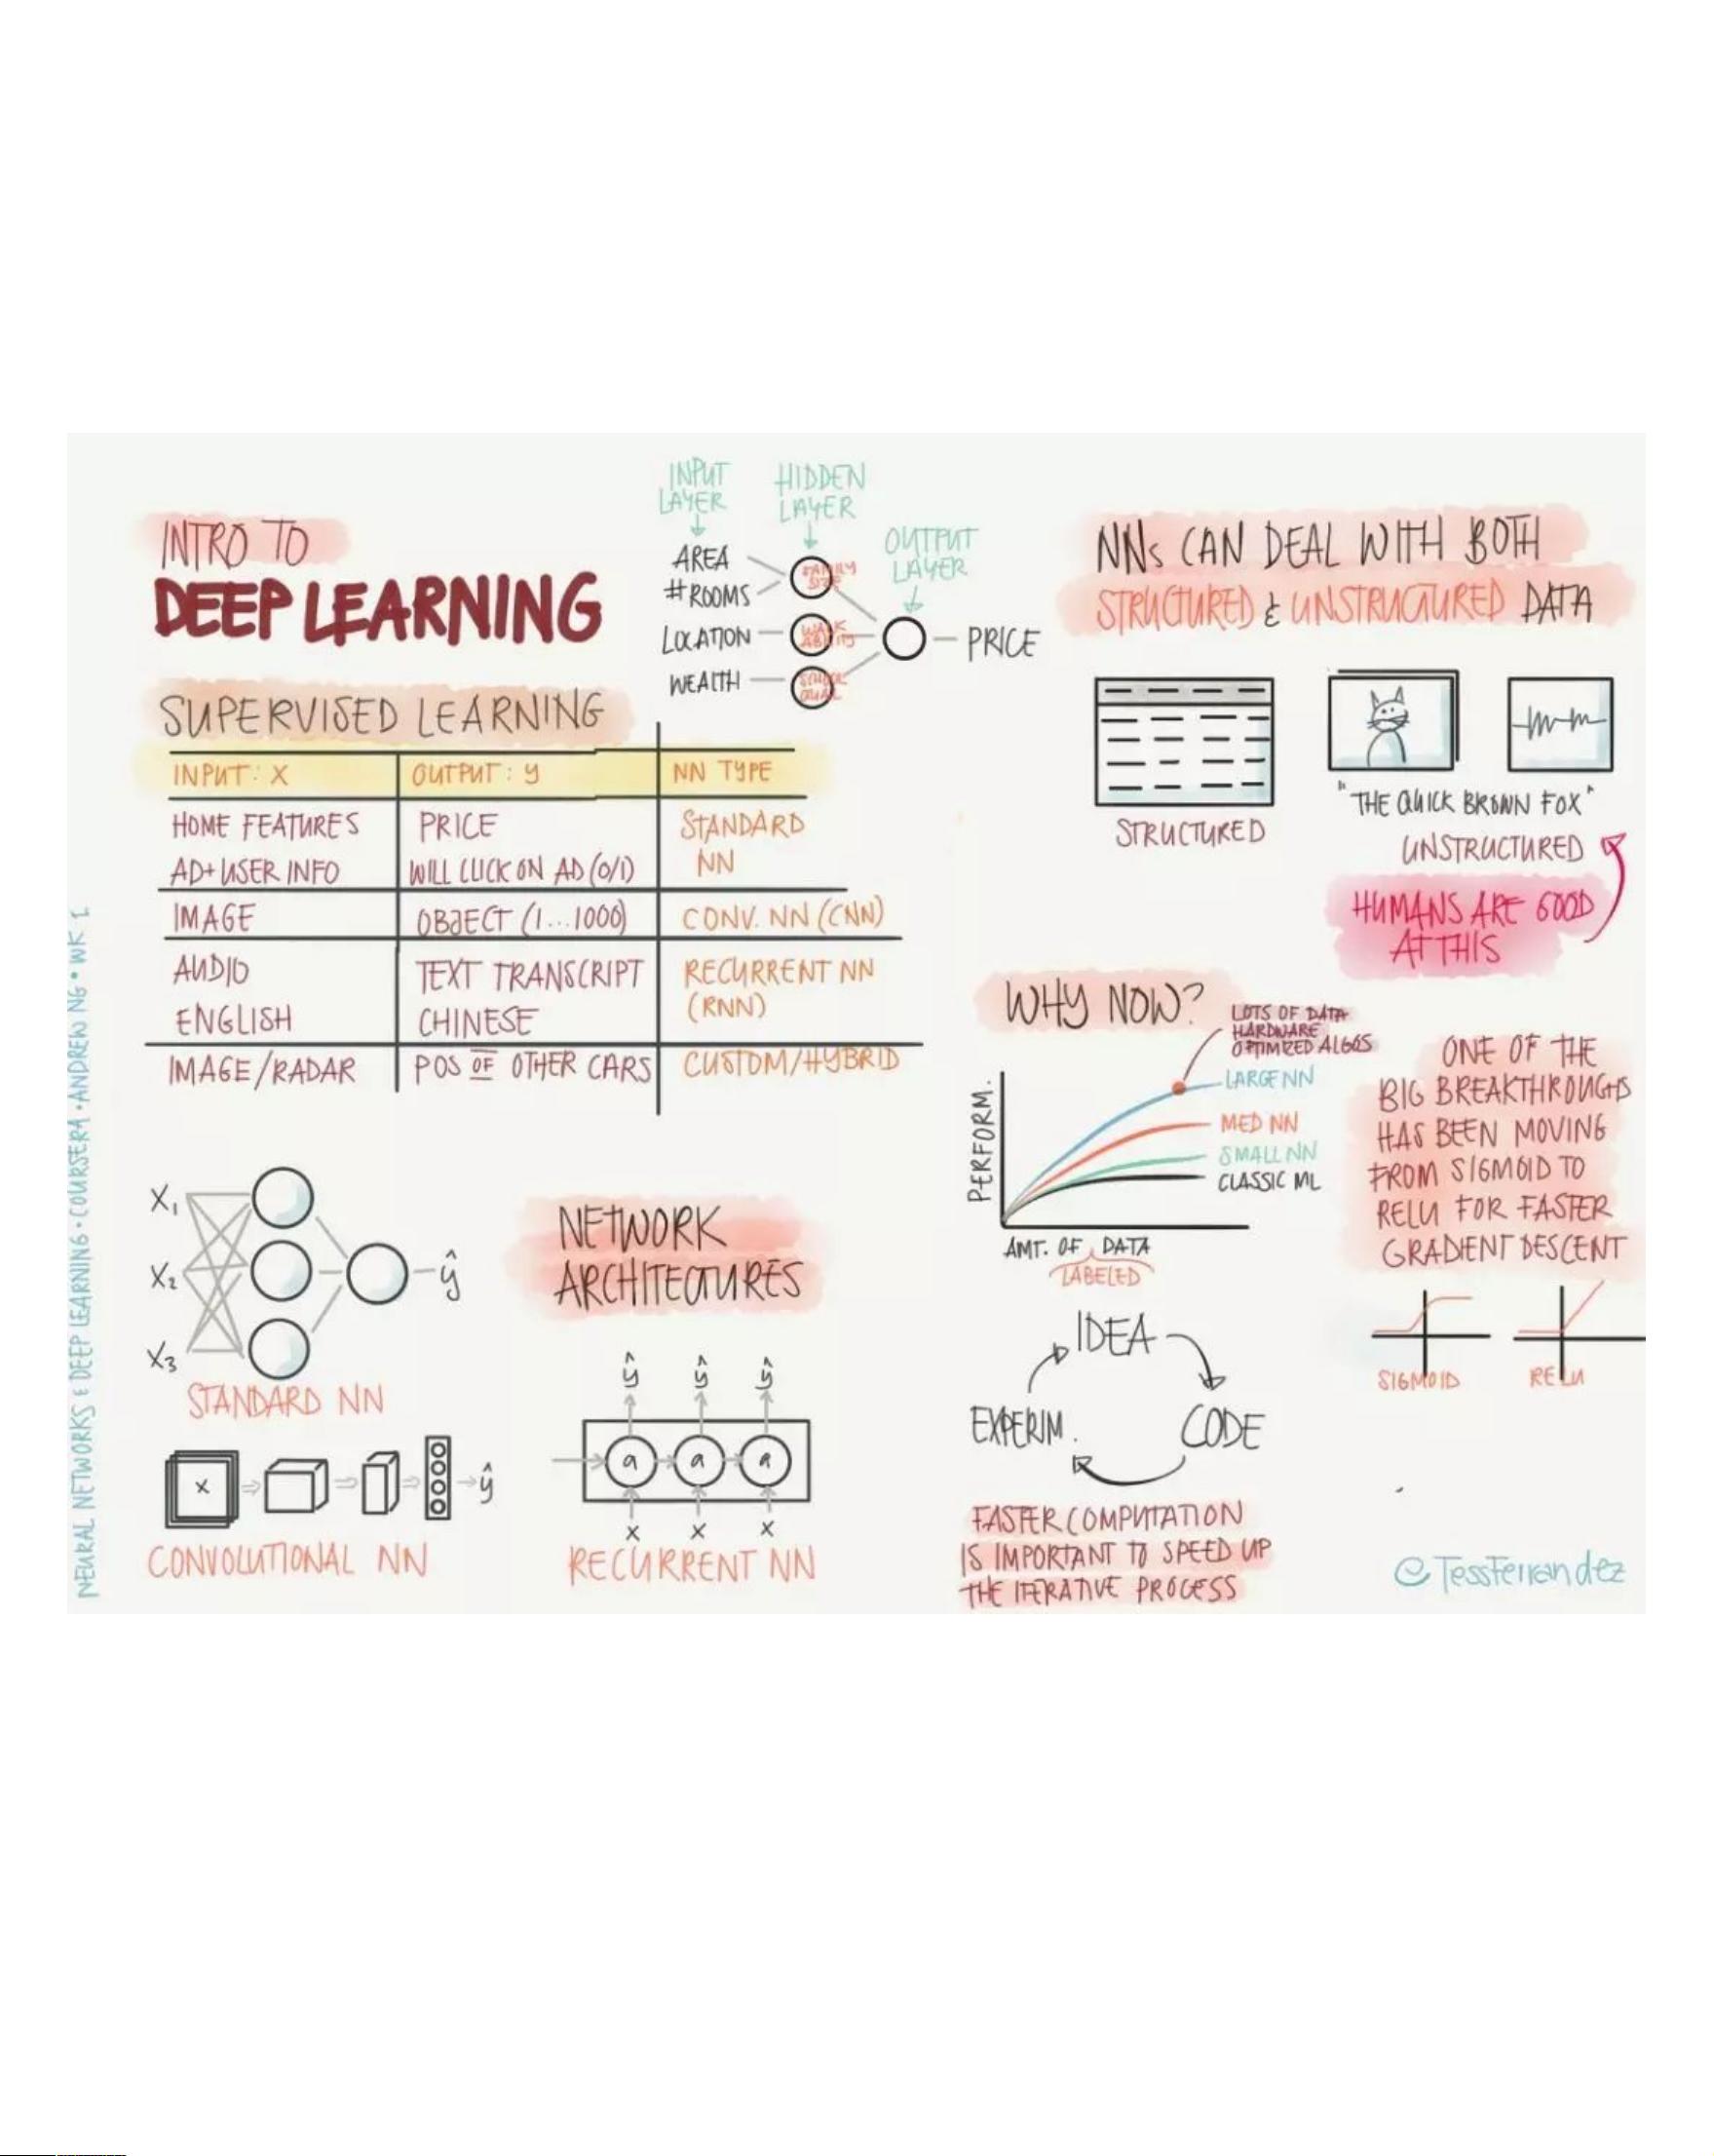 INTRO TO
DEEP LEARNING
INPUT
LAYER
HIDDEN
LAYER
OUTPUT
LAYER
AREA
#ROOMS
LOCATION
WEALTH
FAMILY
SIZE
WALK
ABILITY
SCHOOL
QUAL
PRICE
SUPERVISED LEARNING
INPUT: X OUTPUT: y NN TYPE
HOME FEATURES PRICE STANDARD
NN
AD+USER INFO WILL CLICK ON AD (0/1)
IMAGE OBJECT (1...1000) CONV. NN (CNN)
AUDIO TEXT TRANSCRIPT RECURRENT NN
(RNN)
ENGLISH CHINESE
IMAGE/RADAR POS OF OTHER CARS CUSTOM/HYBRID
X₁
X₂
X₃
ŷ
STANDARD NN
NETWORK
ARCHITECTURES
X
ŷ
CONVOLUTIONAL NN
ŷ ŷ ŷ
a a a
X X X
RECURRENT NN
NNs CAN DEAL WITH BOTH
STRUCTURED & UNSTRUCTURED DATA
STRUCTURED
"THE QUICK BROWN FOX"
UNSTRUCTURED
HUMANS ARE GOOD
AT THIS
WHY NOW?
LOTS OF DATA
HARDWARE
OPTIMIZED ALGOS
LARGE NN
MED NN
SMALL NN
CLASSIC ML
PERFORM.
AMT. OF DATA
LABELED
IDEA
CODE
EXPERIM.
FASTER COMPUTATION
IS IMPORTANT TO SPEED UP
THE ITERATIVE PROCESS
ONE OF THE
BIG BREAKTHROUGHS
HAS BEEN MOVING
FROM SIGMOID TO
RELU FOR FASTER
GRADIENT DESCENT
SIGMOID
RELU
@TessFerrandez
NEURAL NETWORKS & DEEP LEARNING • COURSERA • ANDREW NG • WK 1